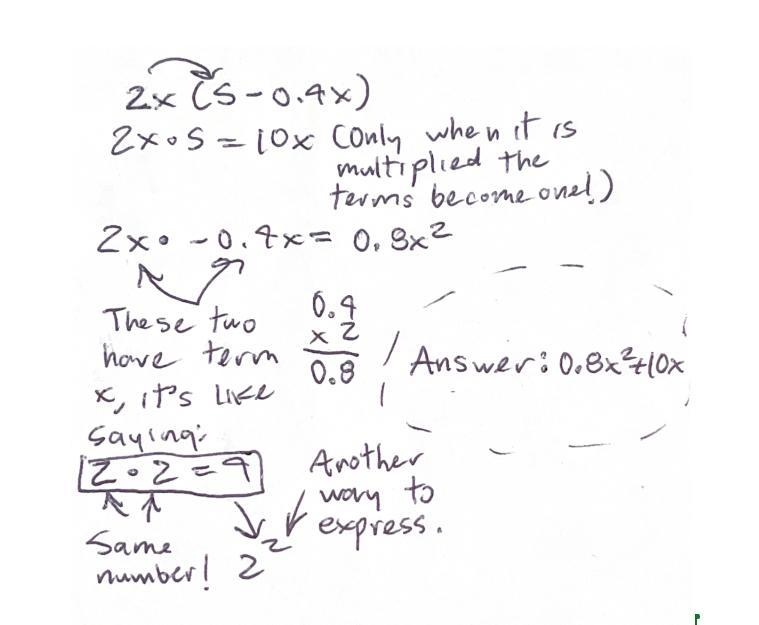 2x (5-0.4x)
2x•5 = 10x (Only when it is
multiplied the
terms become one!)
2x• -0.4x = 0.8x²
These two
have term
x, it's like
saying:
2•2=4
Same
number!
0.4
x 2
0.8
Answer: 0.8x²+10x
Another
way to
express.
2²